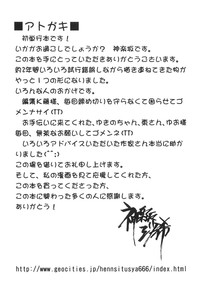 ■アトガキ■
初単行本です！
いかがお過ごしでしょうか？ 神楽坂です。
この本を手にとっていただきありがとうございます。
約2年間いろいろ試行錯誤しながら描き連ねてきた物が
やっと1つの形になりました。
いろんな人のおかげです。
編集K藤様、毎回締め切りを守らなくて困らせてゴ
メンナサイ(TT)
お手伝いに来てくれた、ゆきのちゃん、栗さん、ゆお様
毎回、無茶なお願いしてゴメンネ(TT)
いろいろアドバイスいただいた作家さん本当に助か
りました(^^;)
この場を借りてお礼申し上げます。
そして、私の漫画を見て応援してくれた方、
この本を買ってくださった方、
この本に関わった多くの人に感謝します。
ありがとう！
http://www.geocities.jp/hennsitusya666/index.html